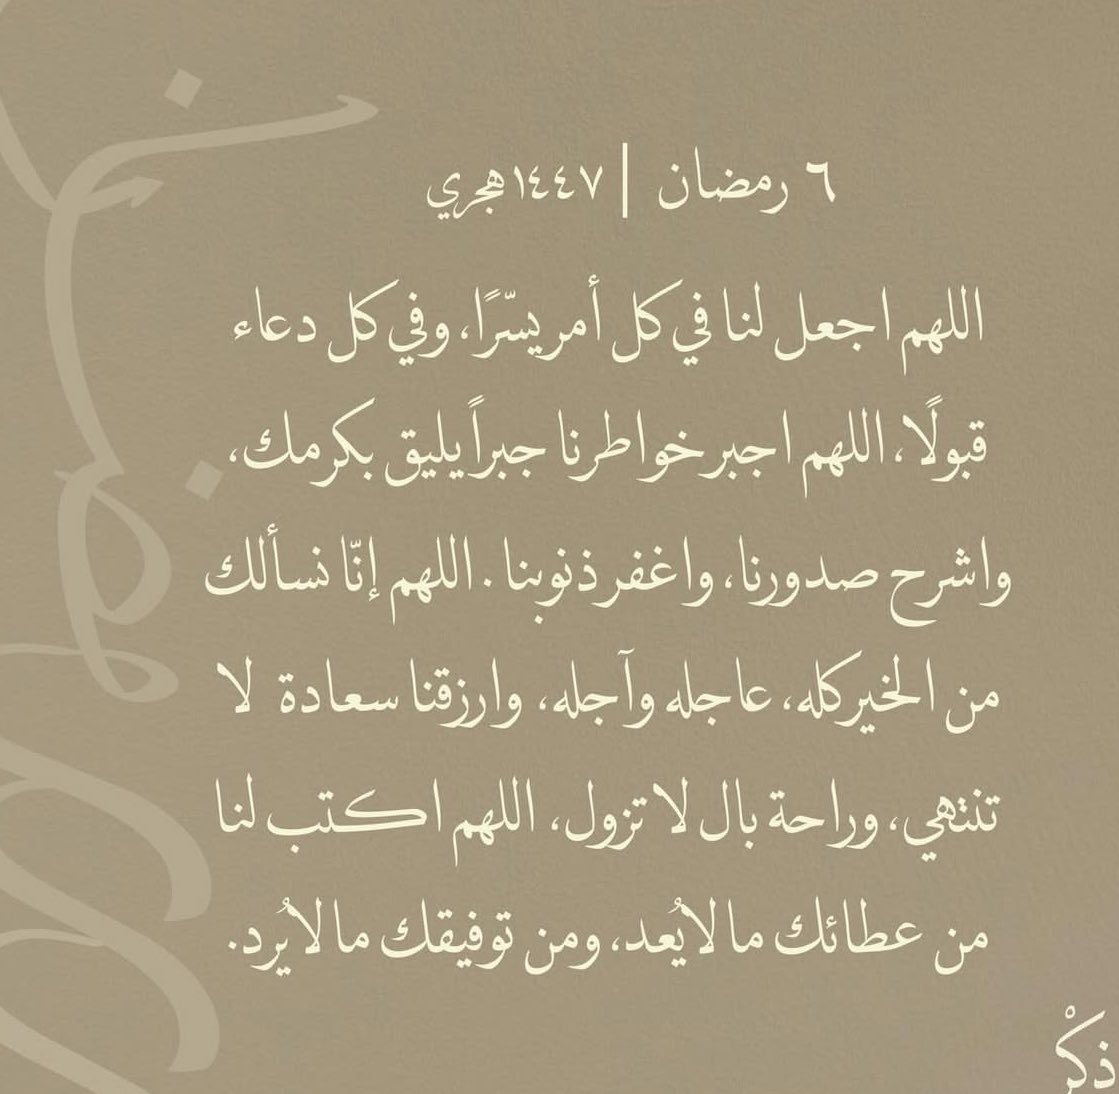 ٦ رمضان | ١٤٤٧هجري
اللهم اجعل لنا في كل أمر يسّرًا، وفي كل دعاء
قبولًا، اللهم اجبر خواطرنا جبراً يليق بكرمك،
واشرح صدورنا، واغفر ذنوبنا. اللهم إنّا نسألك
من الخير كله، عاجله وآجله، وارزقنا سعادة لا
تنتهي، وراحة بال لا تزول، اللهم اكتب لنا
من عطائك ما لا يُعد، ومن توفيقك ما لا يُرد.
ذكْر